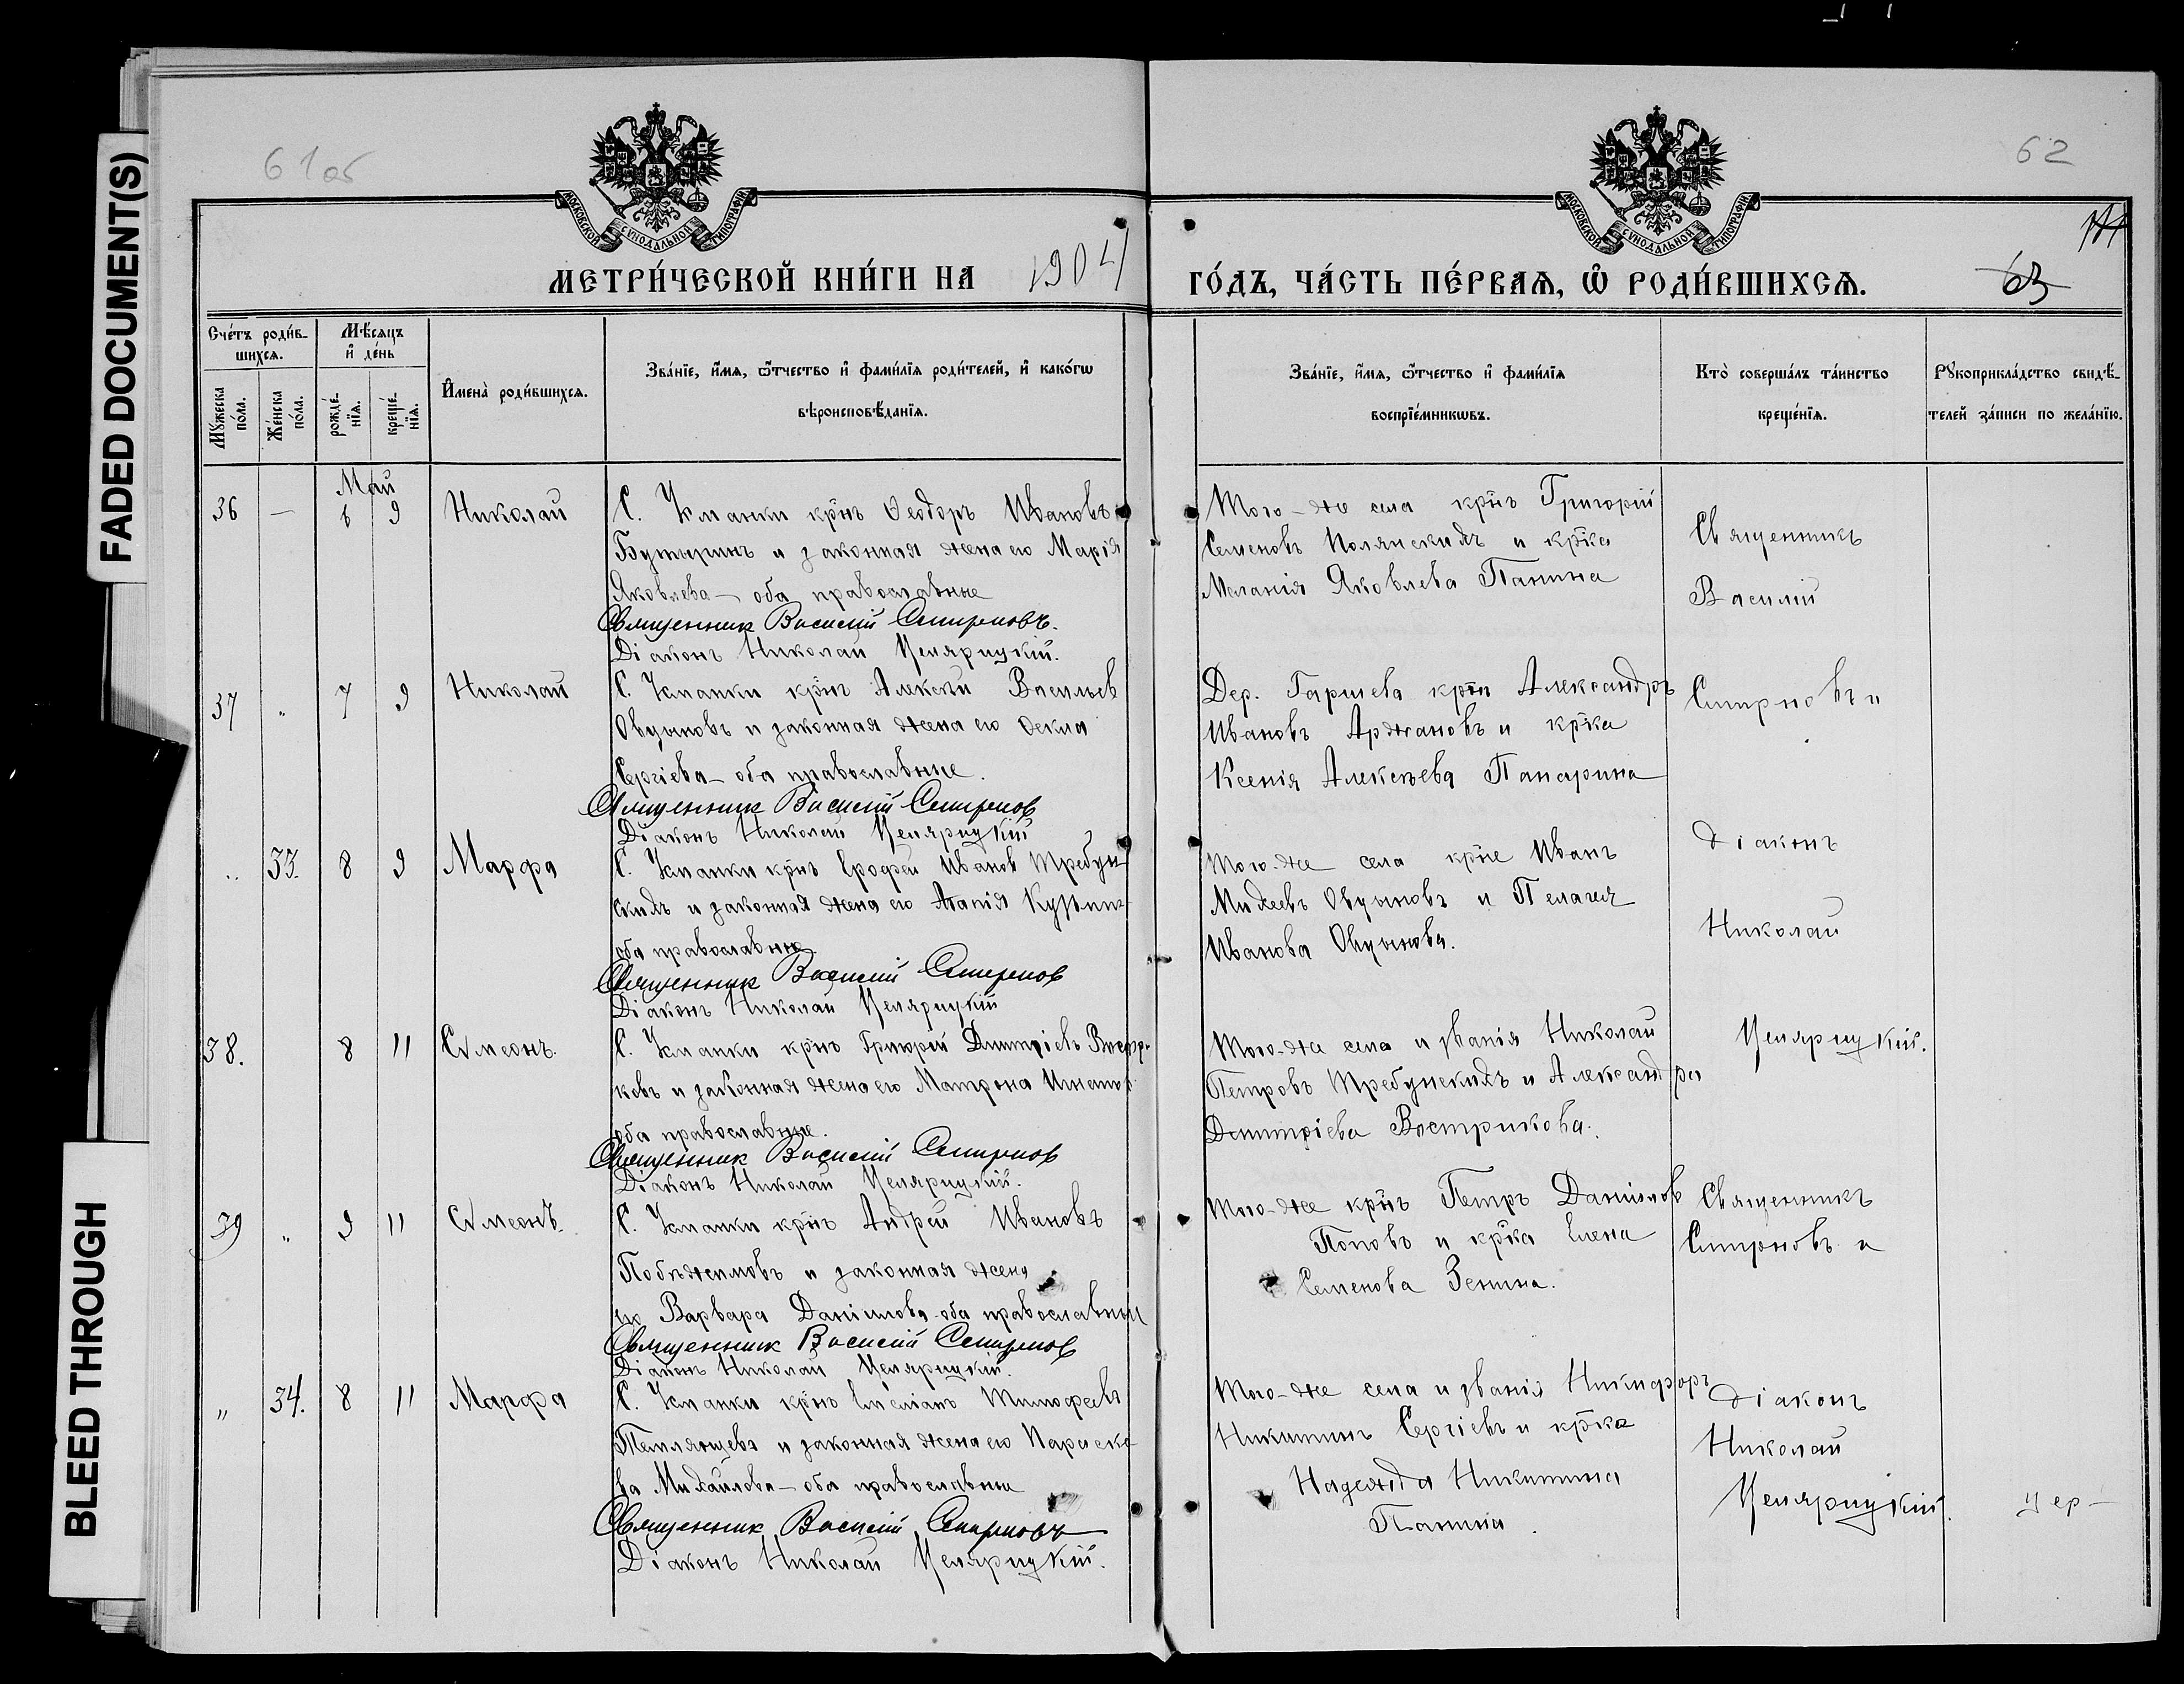 FADED DOCUMENT(S)
BLEED THROUGH
61об
62
МОСКОВСКОЙ СУНОДАЛЬНОЙ ТИПОГРАФІИ
МОСКОВСКОЙ СУНОДАЛЬНОЙ ТИПОГРАФІИ
63
МЕТРИ́ЧЕСКОЙ КНИ́ГИ НА 1904 ГО́ДЪ, ЧА́СТЬ ПЕ́РВАѦ, Ѡ҆ РОДИ́ВШИХСѦ.
Сче́тъ роди́в-
шихся.
Мѣ́сяцъ
и҆ де́нь
Мꙋ́жеска
по́ла.
Же́нска
по́ла.
рожде́-
нїя.
креще́-
нїя.
И҆мена̀ роди́вшихся.
Зва́нїе, и҆́мя, ѻ҆́тчество и҆ фами́лїя роди́телей, и҆ како́гѡ
вѣроисповѣ́данїя.
Зва́нїе, и҆́мя, ѻ҆́тчество и҆ фами́лїя
воспрїе́мникѡвъ.
Кто̀ соверша́лъ та́инство
креще́нїя.
Рꙋкоприкла́дство свидѣ́-
телей за́писи по жела́нїю.
Май
36 — 6 9 Николай
С. Усманки крнъ Ѳеодоръ Ивановъ
Бутыринъ и законная жена его Марія
Яковлева — оба православные
Священник Василій Смирновъ.
Діаконъ Николай
Того-же села крнъ Григорій
Семеновъ Полянскихъ и крка
Меланія Яковлева Панина
Священникъ
Василій
37 " 7 9 Николай
С. Усманки крнъ Алексѣй Васильев
Овцыновъ и законная жена его Ѳекла
Сергіева — оба православные.
Священник Василій Смирнов
Діаконъ Николай
Дер. Гаршева крнъ Александръ
Ивановъ Аржановъ и крка
Ксенія Алексѣева Панарина
Смирновъ и
" 33. 8 9 Марфа
С. Усманки крнъ Ерофей Иванов Требун-
скихъ и законная жена его Агапія
оба православные.
Священник Василій Смирнов
Діаконъ Николай
Того-же села крне Иванъ
Михеевъ Овцыновъ и Пелагія
Иванова Овцынова.
Діаконъ
Николай
38. 8 11 Сѵмеонъ.
С. Усманки крнъ Григорій Дмитріевъ Востри-
ковъ и законная жена его Матрона
оба православные.
Священник Василій Смирнов
Діаконъ Николай
Того-же села и званія Николай
Петровъ Требунскихъ и Александра
Дмитріева Вострикова.
39 " 9 11 Сѵмеонъ.
С. Усманки крнъ Андрей Ивановъ
Побѣжимовъ и законная жена
его Варвара Даніилова оба православные
Священник Василій Смирнов
Діаконъ Николай
Того-же крнъ Петръ Даніилов
Поповъ и крка Елена
Семенова Зенина.
Священникъ
Смирновъ и
" 34. 8 11 Марфа
С. Усманки крнъ Емеліанъ Тимофеевъ
и законная жена его Параске-
ва Михайлова — оба православные
Священник Василій Смирновъ
Діаконъ Николай
Того-же села и званія Никифоръ
Никитинъ Сергіевъ и крка
Надежда Никитина
Панина.
Діаконъ
Николай